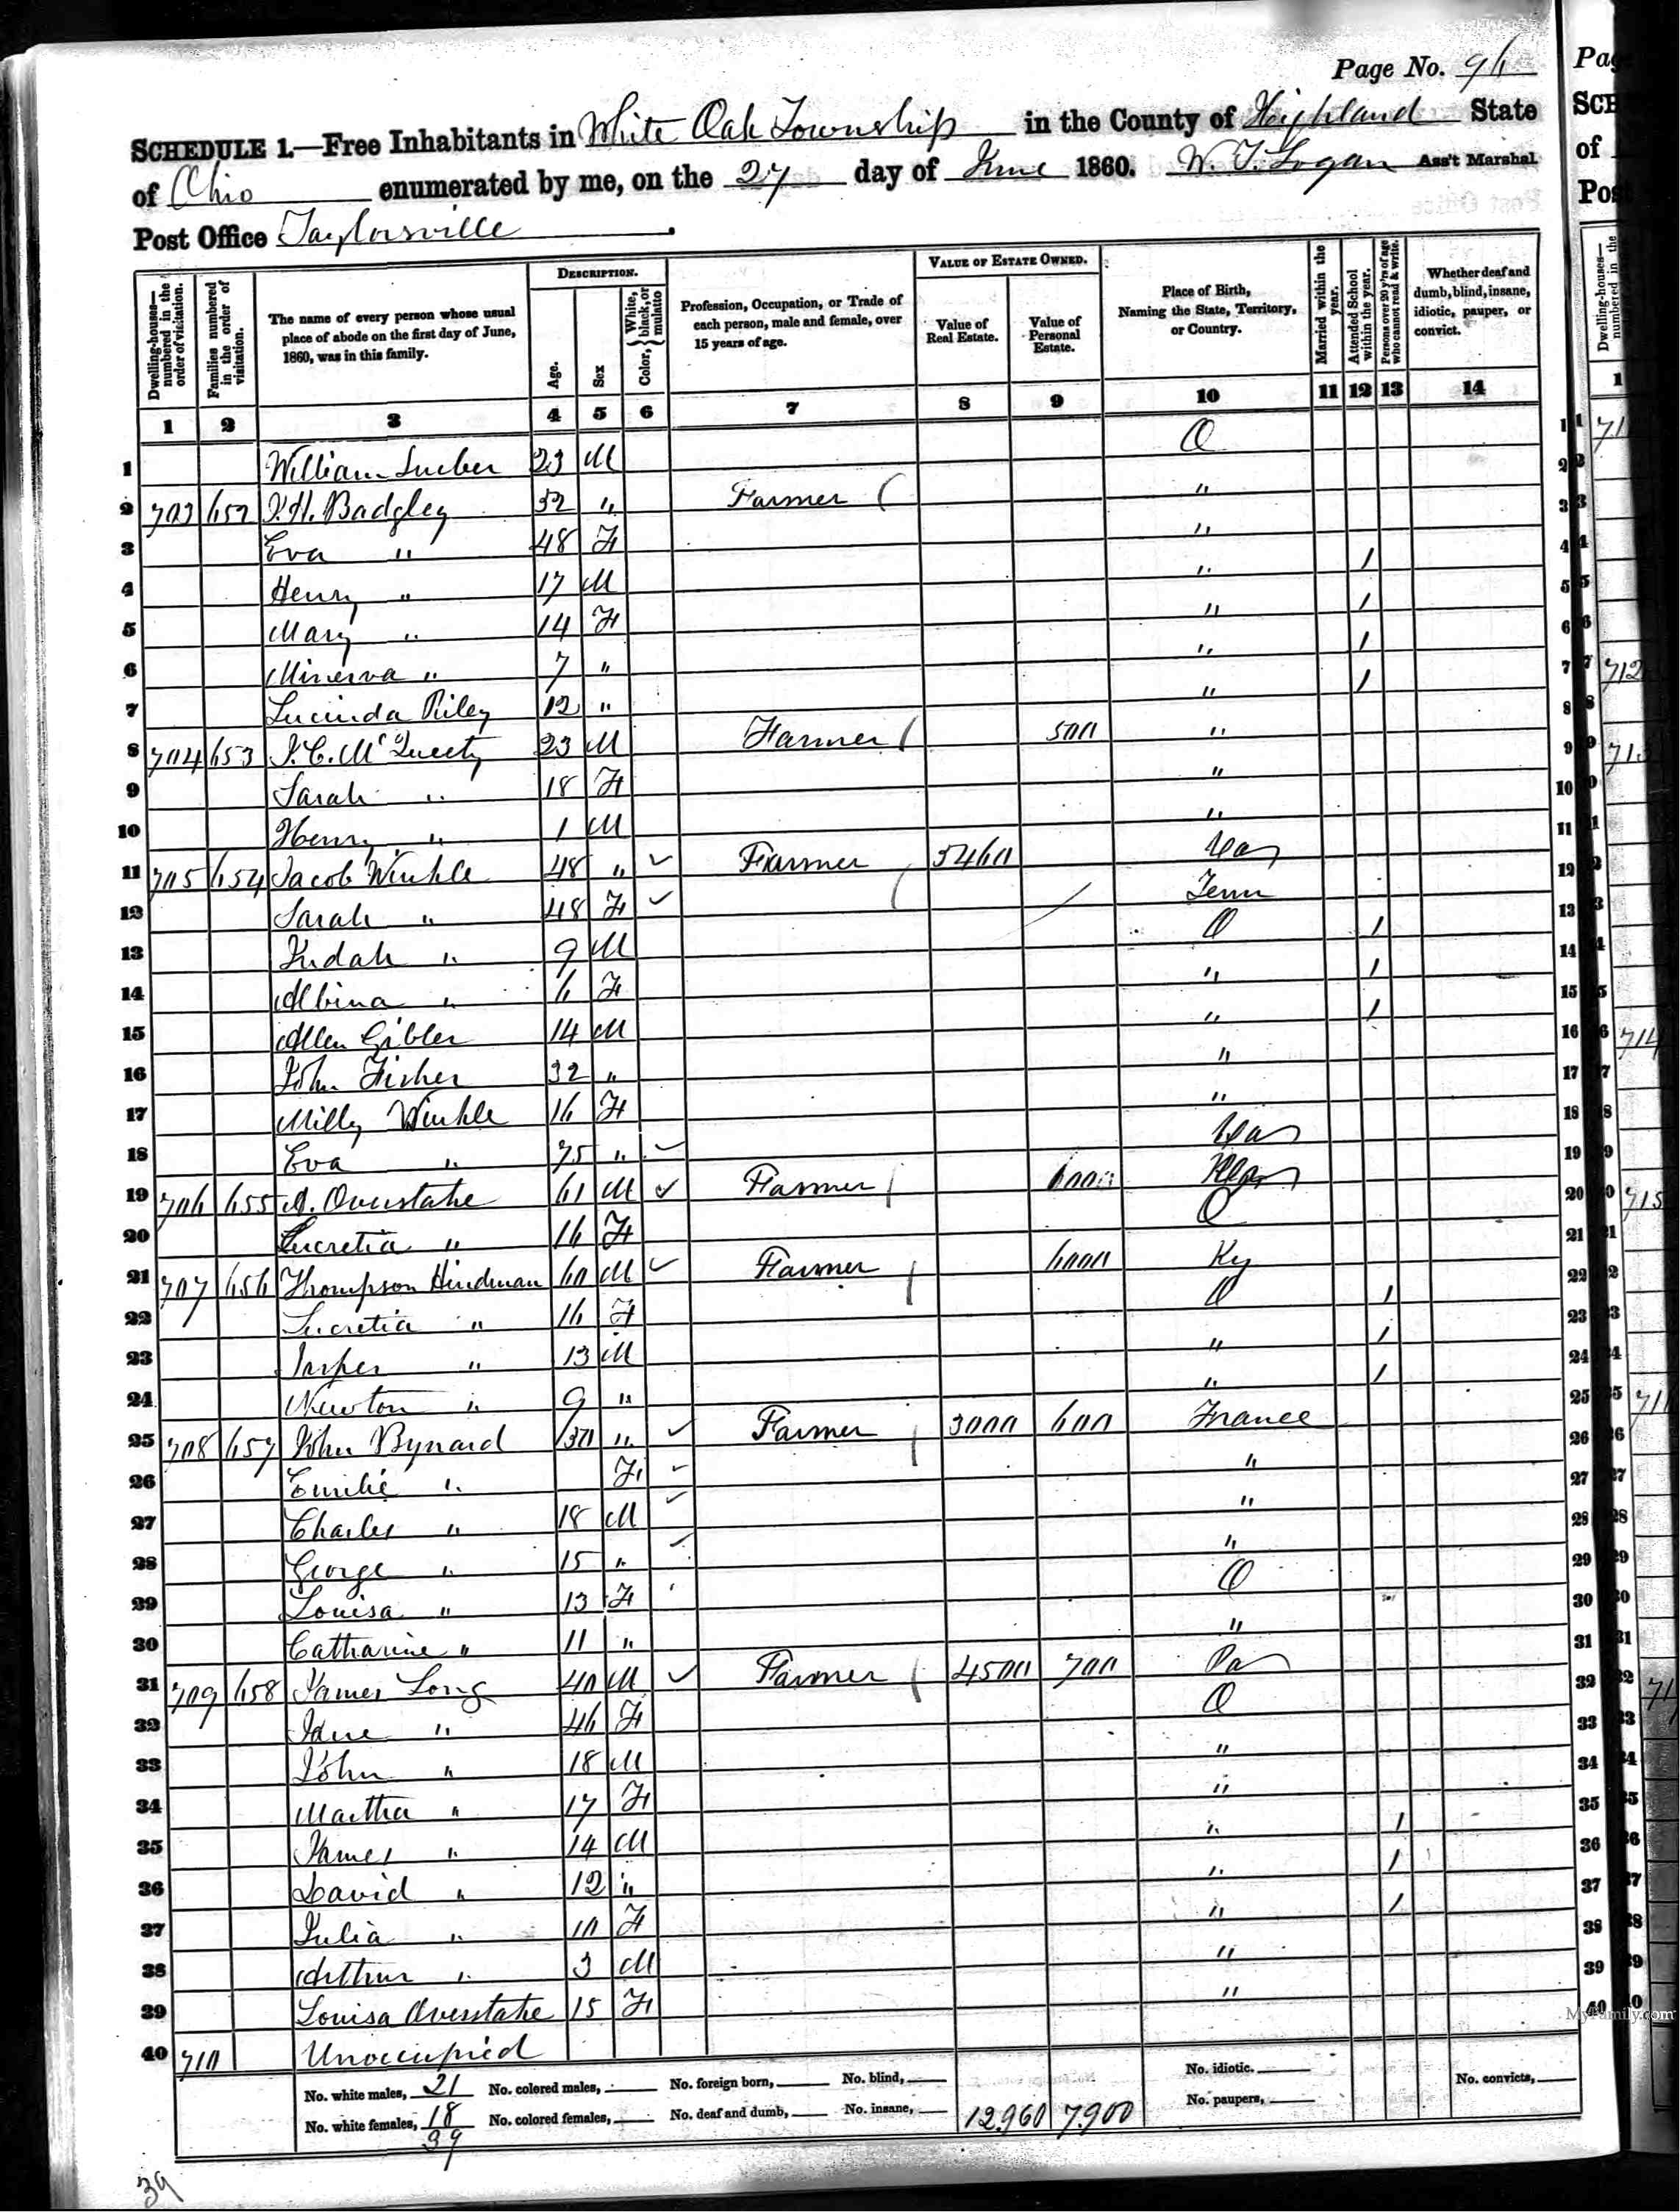 Page No. 96
SCHEDULE 1.—Free Inhabitants in White Oak Township in the County of Highland State
of Ohio enumerated by me, on the 27 day of June 1860. W. T. Logan Ass't Marshal
Post Office Taylorsville.
DESCRIPTION. VALUE OF ESTATE OWNED.
Dwelling-houses—numbered in the order of visitation. Families numbered in the order of visitation. The name of every person whose usual place of abode on the first day of June, 1860, was in this family. Age. Sex Color, White, black, or mulatto Profession, Occupation, or Trade of each person, male and female, over 15 years of age. Value of Real Estate. Value of Personal Estate. Place of Birth, Naming the State, Territory, or Country. Married within the year. Attended School within the year. Persons over 20 y'rs of age who cannot read & write. Whether deaf and dumb, blind, insane, idiotic, pauper, or convict.
1 2 3 4 5 6 7 8 9 10 11 12 13 14
1 William 23 M O 1
2 703 652 Badgley 52 " Farmer " 2
3 Eva " 48 F " 3
4 Henry " 17 M " / 4
5 Mary " 14 F " / 5
6 Minerva " 7 " " / 6
7 Lucinda Riley 12 " " / 7
8 704 653 23 M Farmer 500 " 8
9 Sarah " 18 F " 9
10 Henry " 1 M " 10
11 705 654 Jacob Winkle 48 " ✓ Farmer 5460 Va 11
12 Sarah " 48 F ✓ / Tenn 12
13 Judah " 9 M O / 13
14 Albina " 6 F " / 14
15 Allen Gibler 14 M " / 15
16 John Fisher 32 " " 16
17 Milly Winkle 16 F " 17
18 Eva " 75 " ✓ Va 18
19 706 655 A. Overstake 61 M ✓ Farmer 19
20 Lucretia " 16 F O 20
21 707 656 Thompson Hindman 60 M ✓ Farmer 6000 Ky 21
22 Lucretia " 16 F O / 22
23 Jasper " 13 M " / 23
24 Newton " 9 " " / 24
25 708 657 John Bynard " ✓ Farmer 3000 600 France 25
26 Emilie " F ✓ " 26
27 Charles " 18 M ✓ " 27
28 George " 15 " ✓ " 28
29 Louisa " 13 F O 29
30 Catharine " 11 " " 30
31 709 658 James Long 40 M ✓ Farmer 4500 700 Pa 31
32 Jane " 46 F O 32
33 John " 18 M " 33
34 Martha " 17 F " 34
35 James " 14 M " / 35
36 David " 12 " " / 36
37 Julia " 10 F " / 37
38 Arthur " 3 M " 38
39 Louisa Overstake 15 F " 39
40 710 Unoccupied 40
No. white males, 21 No. colored males, No. foreign born, No. blind, No. idiotic. No. convicts,
No. white females, 18 No. colored females, No. deaf and dumb, No. insane, 12.960 7.900 No. paupers,
39
39
MyFamily.com
Pag
SCH
of
Pos
Dwelling-houses—numbered in the
1
71
712
713
714
715